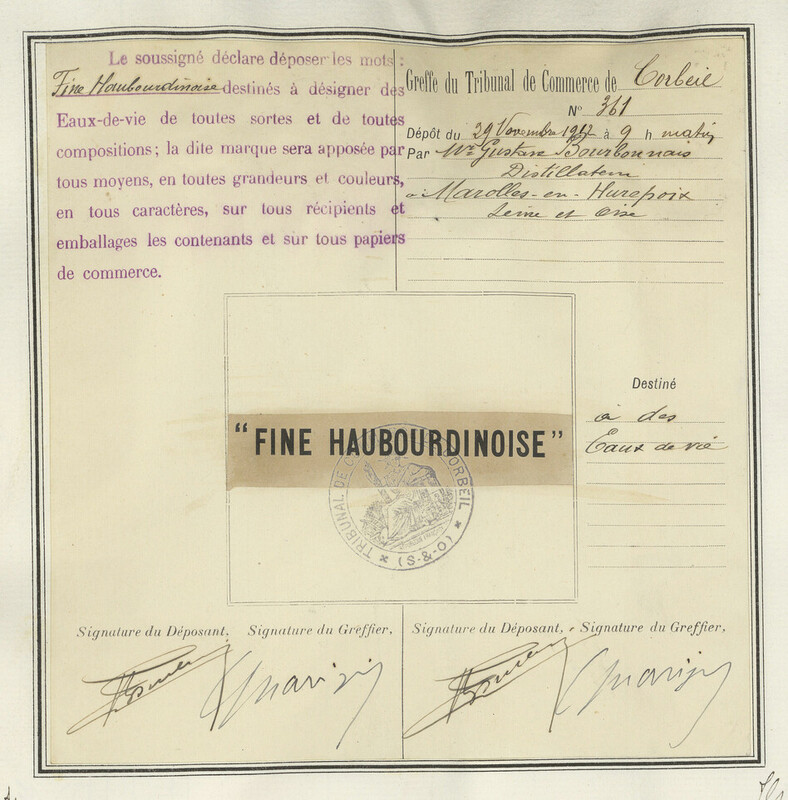 Le soussigné déclare déposer les mots :
Fine Haubourdinoise destinés à désigner des
Eaux-de-vie de toutes sortes et de toutes
compositions ; la dite marque sera apposée par
tous moyens, en toutes grandeurs et couleurs,
en tous caractères, sur tous récipients et
emballages les contenants et sur tous papiers
de commerce.
Greffe du Tribunal de Commerce de Corbeil
N° 361
Dépôt du 29 Novembre 1912 à 9 h matin
Par Mr Gustave Bourbonnais
Distillateur
à Marolles-en-Hurepoix
Seine et Oise
Destiné
à des
Eaux de vie
"FINE HAUBOURDINOISE"
TRIBUNAL DE CORBEIL
(S-&-O)
Signature du Déposant, Signature du Greffier,
Signature du Déposant, Signature du Greffier,